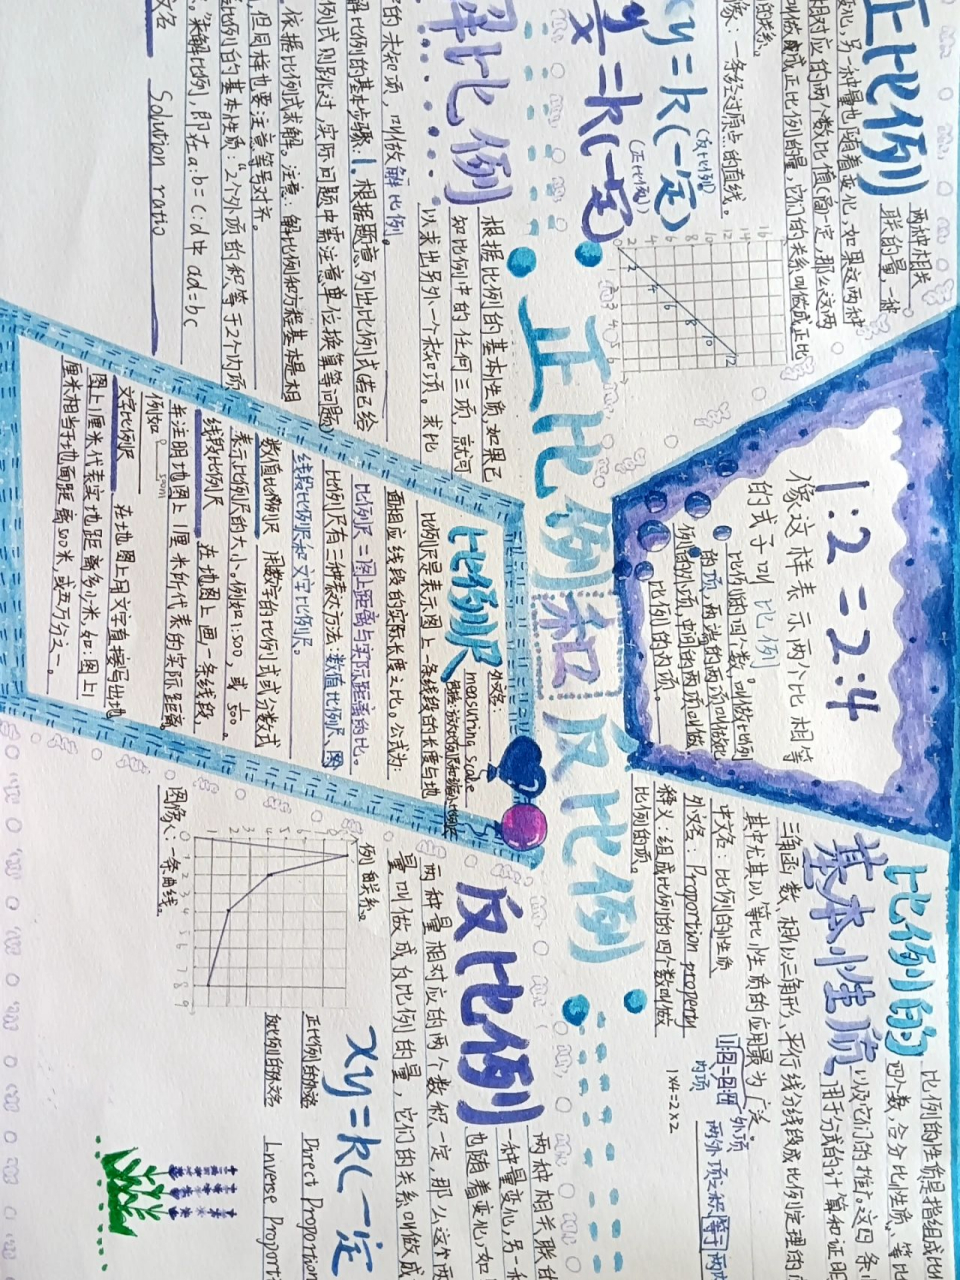 正比例和反比例
正比例
两种相关
联的量，一种
变化，另一种量也随着变化，如果这两种
相对应的两个数比值(商)一定，那么这两
叫做成正比例的量，它们的关系叫做成正比
的关系。
像：一条经过原点的直线。
xy=k(一定)
(反比例)
y/x=k(一定)
(正比例)
2 4 6 8 10 12 14 16
1 2 3 4 5 6
2 4 6 8 10 12
解比例
根据比例的基本性质，如果已
知比例中的任何三项，就可
以求出另外一个未知项。求比
的未知项，叫做解比例。
解比例的基本步骤：1.根据题意列出比例式若已给
例式则跳过，实际问题中需注意单位换算等问题
依据比例式求解。注意：解比例和方程基本是相
但同样也要注意等号对齐。
比例的基本性质：“2个外项的积等于2个内项
求解比例，即在a:b=c:d中 ad=bc
文名 Solution ratio
1:2=2:4
像这样表示两个比相等
的式子叫比例
比例的四个数，叫做比例
的项，两端的两项叫做比
例的外项，中间的两项叫做
比例的内项。
比例尺
外文名：
mensuring scale
比例尺是表示图上一条线段的长度与地
面相应线段的实际长度之比。公式为：
比例尺=图上距离与实际距离的比。
比例尺有三种表示方法：数值比例尺、图
线段比例尺和文字比例尺。
数值比例尺 用数字的比例式或分数式
表示比例尺的大小。例如1:500，或1/500
线段比例尺 在地图上画一条线段，
并注明地图上1厘米所代表的实际距离
例如 0 500m
文字比例尺 在地图上用文字直接写出地
图上1厘米代表实地距离多少米，如：图上1
厘米相当于地面距离500米，或五万分之一。
比例的
基本性质
比例的性质是指组成比
四个数，合分比性质、等比
以及它们的推广。这四条
用于分式的计算和证明
三角函数、相似三角形、平行线分线段成比例定理的
其中尤其以等比性质的应用最为广泛。
中文名：比例的性质
外文名：Proportion property
释义：组成比例的四个数叫做
比例的项。
1:2=2:4
外项
内项
1×4=2×2
两外项之积等于两内
反比例
两种相关联的
一种量变化，另一
也随着变化，如
两种量相对应的两个数积一定，那么这两
量叫做成反比例的量，它们的关系叫做成
例关系。
xy=k(一定
图像：一条曲线。
1 2 3 4 5 6 7 8
1 2 3 4 5 6 7 8 9
正比例的外文名 Direct Proportion
反比例的外文名 Inverse Proporti